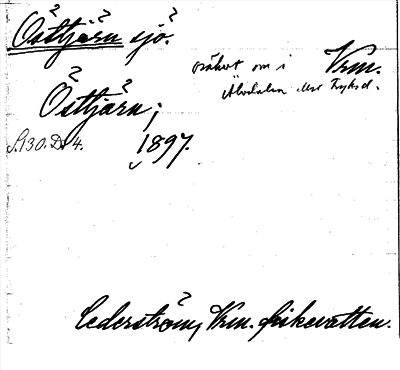 Östtjärn sjö.
osäkert om i Vrm.
Älvdalen eller Fryksd.
Östtjärn;
1897.
Cederström, Vrm. fiskevatten.